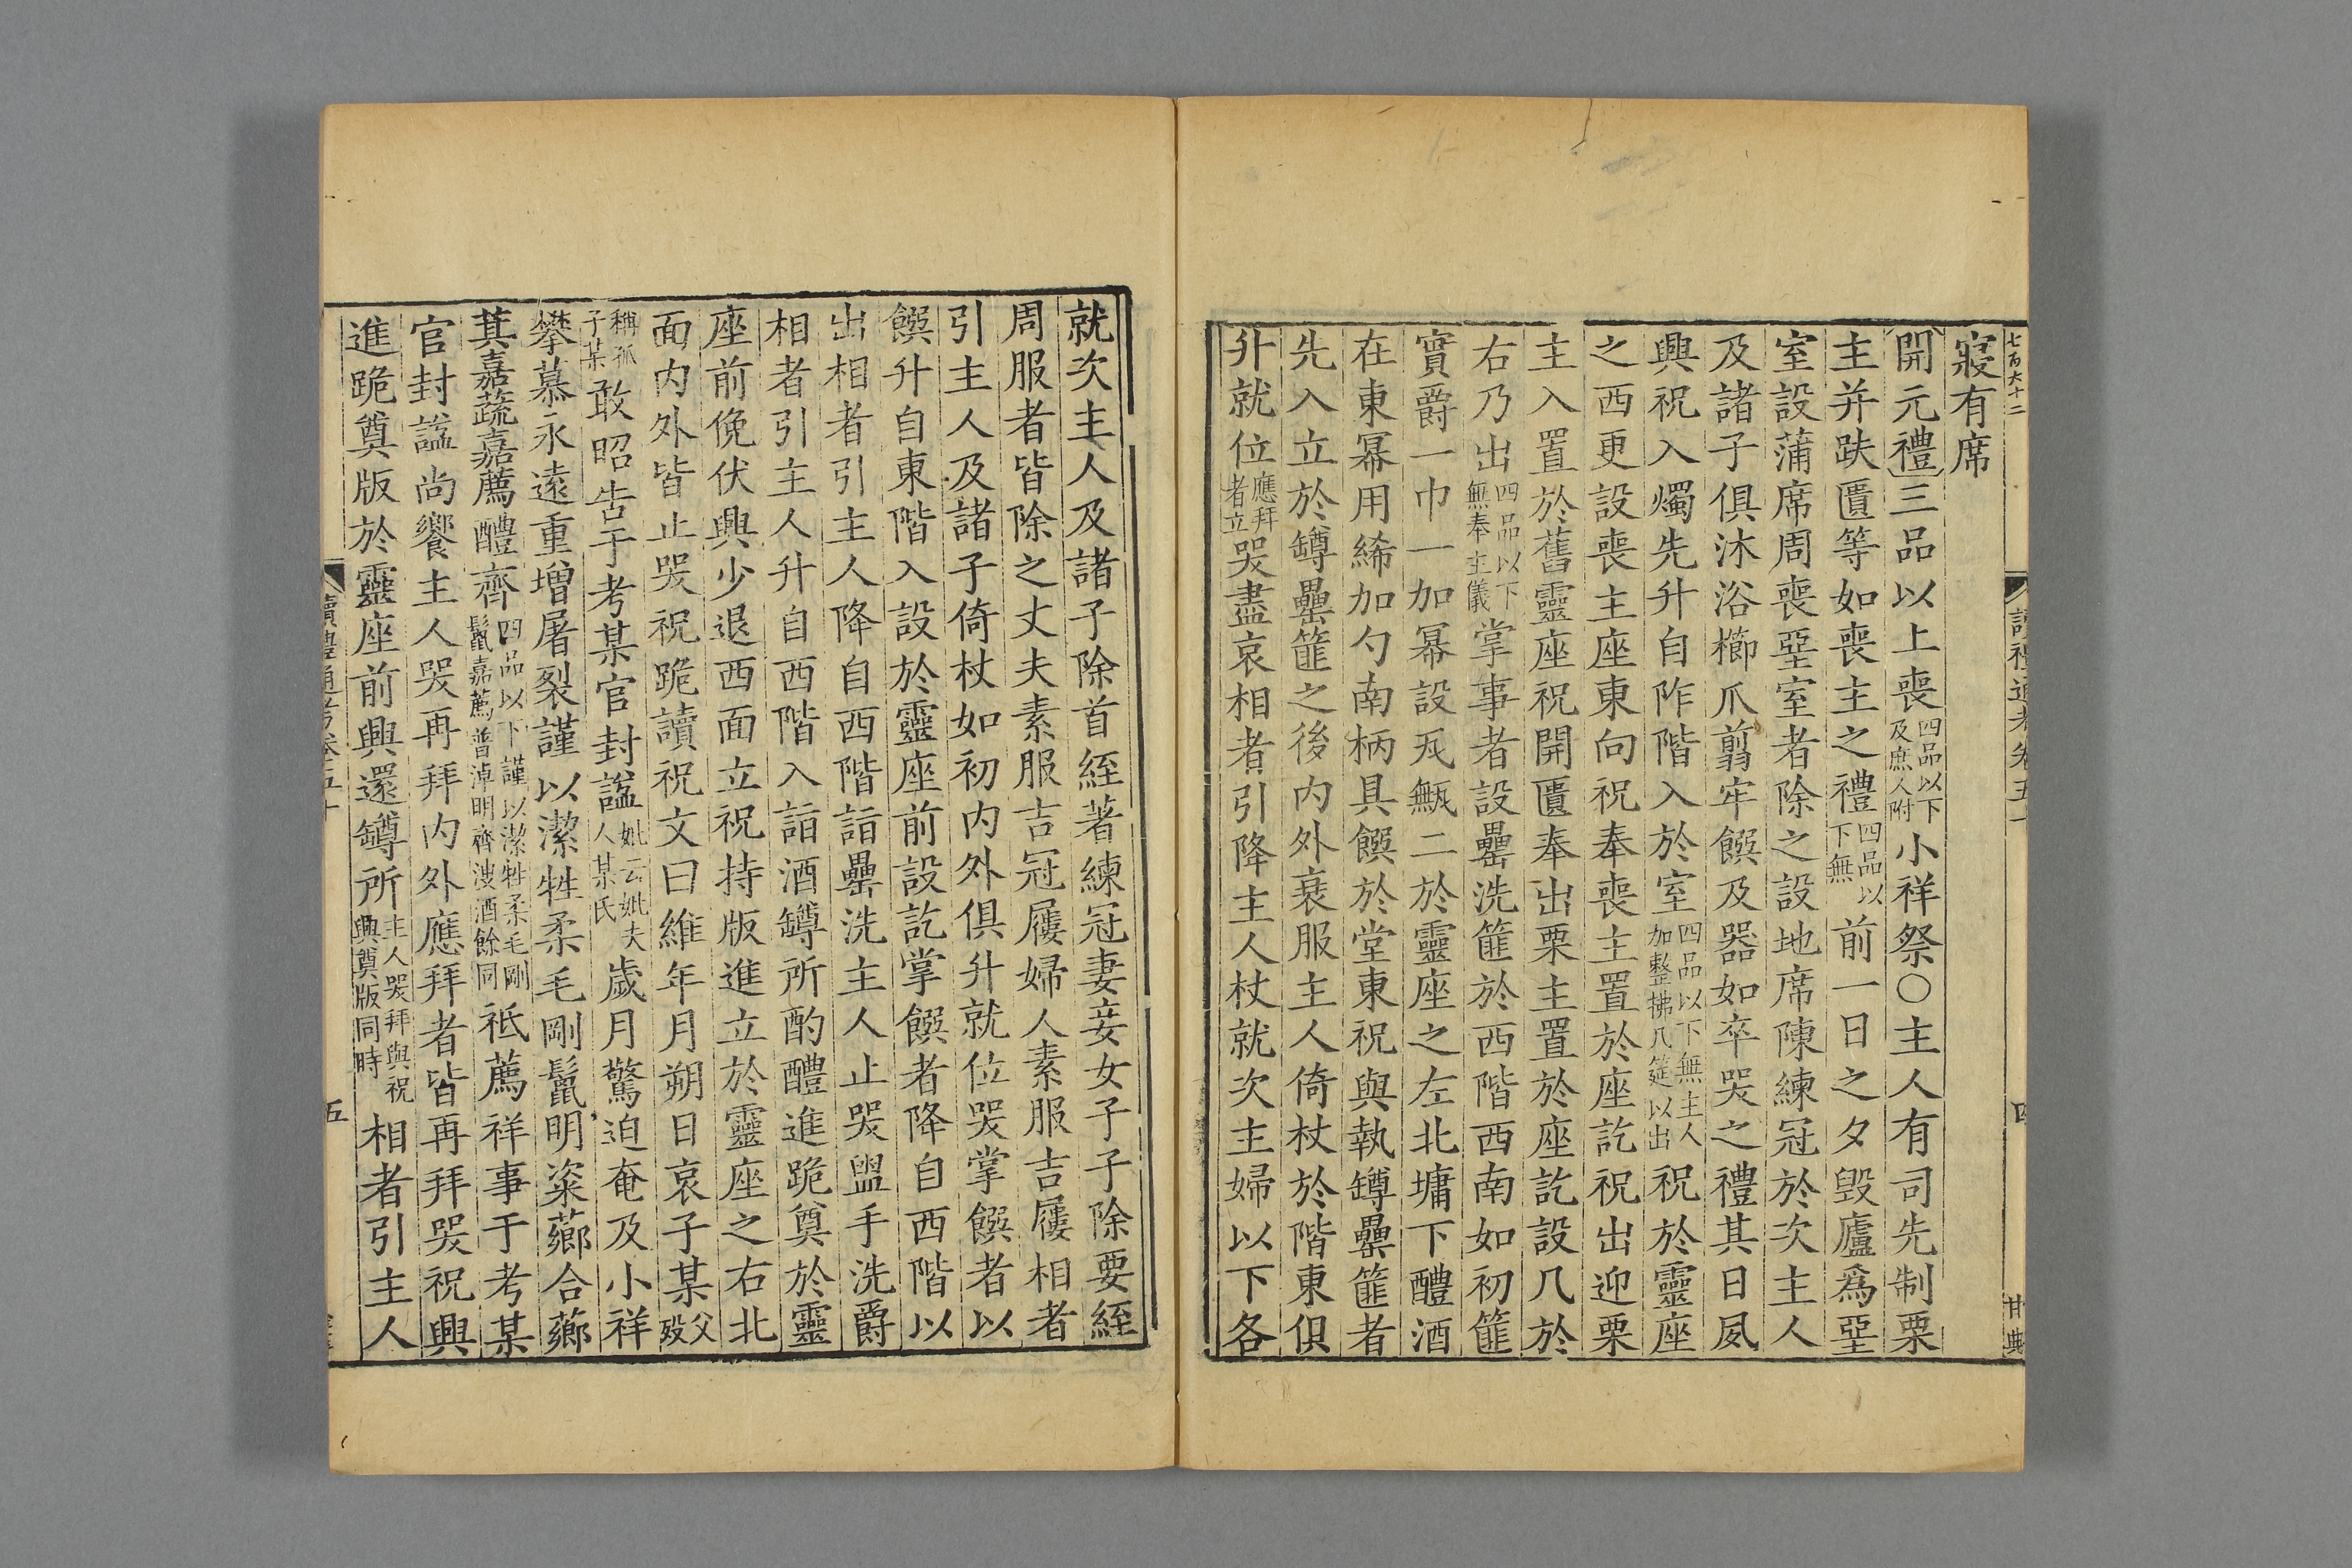 七百六十二
寢有席
開元禮三品以上喪四品以下及庶人附小祥祭○主人有司先制栗
主并趺匱等如喪主之禮四品以下無前一日之夕毀廬爲堊
室設蒲席周喪堊室者除之設地席陳練冠於次主人
及諸子俱沐浴櫛爪翦牢饌及器如卒哭之禮其日夙
興祝入燭先升自阼階入於室四品以下無主人加整拂几筵以出祝於靈座
之西更設喪主座東向祝奉喪主置於座訖祝出迎栗
主入置於舊靈座祝開匱奉出栗主置於座訖設几於
右乃出四品以下無奉主儀掌事者設罍洗篚於西階西南如初篚
實爵一巾一加冪設瓦甒二於靈座之左北墉下醴酒
在東冪用絺加勺南柄具饌於堂東祝與執罇罍篚者
先入立於罇罍篚之後內外衰服主人倚杖於階東俱
升就位應拜者立哭盡哀相者引降主人杖就次主婦以下各
就次主人及諸子除首絰著練冠妻妾女子子除要絰
周服者皆除之丈夫素服吉冠屨婦人素服吉屨相者
引主人及諸子倚杖如初內外俱升就位哭掌饌者以
饌升自東階入設於靈座前設訖掌饌者降自西階以
出相者引主人降自西階詣罍洗主人止哭盥手洗爵
相者引主人升自西階入詣酒罇所酌醴進跪奠於靈
座前俛伏興少退西面立祝持版進立於靈座之右北
面內外皆止哭祝跪讀祝文曰維年月朔日哀子某父歿
稱孤子某敢昭告于考某官封諡妣云妣夫人某氏歲月驚迫奄及小祥
攀慕永遠重增屠裂謹以潔牲柔毛剛鬣明粢薌合薌
萁嘉蔬嘉薦醴齊四品以下謹以潔牲柔毛剛鬣嘉薦普淖明齊溲酒餘同祗薦祥事于考某
官封諡尚饗主人哭再拜內外應拜者皆再拜哭祝興
進跪奠版於靈座前興還罇所主人哭拜與祝興奠版同時相者引主人
讀禮通考卷五十
五